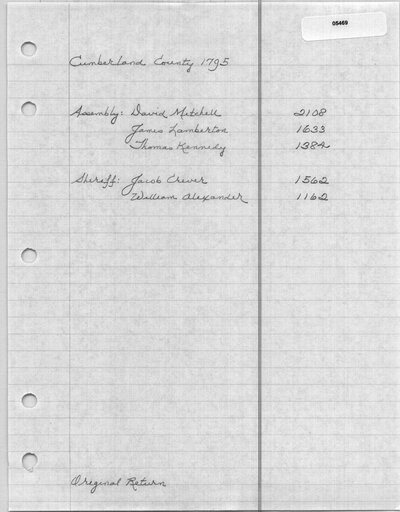 05469
Cumberland County 1795
Assembly: David Mitchell 2108
James Lamberton 1633
Thomas Kennedy 1384
Sheriff: Jacob Crever 1562
William Alexander 1162
Original Return